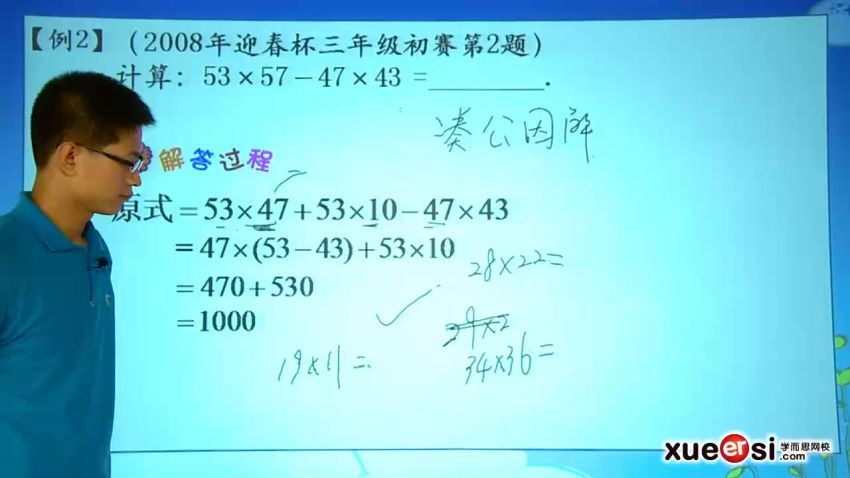 【例2】（2008年迎春杯三年级初赛第2题）
计算：53×57－47×43 =________.
凑公因解
解答过程
原式＝53×47＋53×10－47×43
＝47×(53－43)＋53×10
28×22=
＝470＋530
＝1000
19×11=
34×36=
xueersi.com 学而思网校